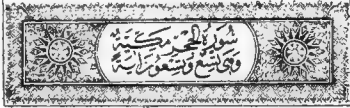 سُورَةُ الْحِجْرِ مَكِّيَّة
وَهِيَ تِسْعٌ وَتِسْعُونَ آيَة